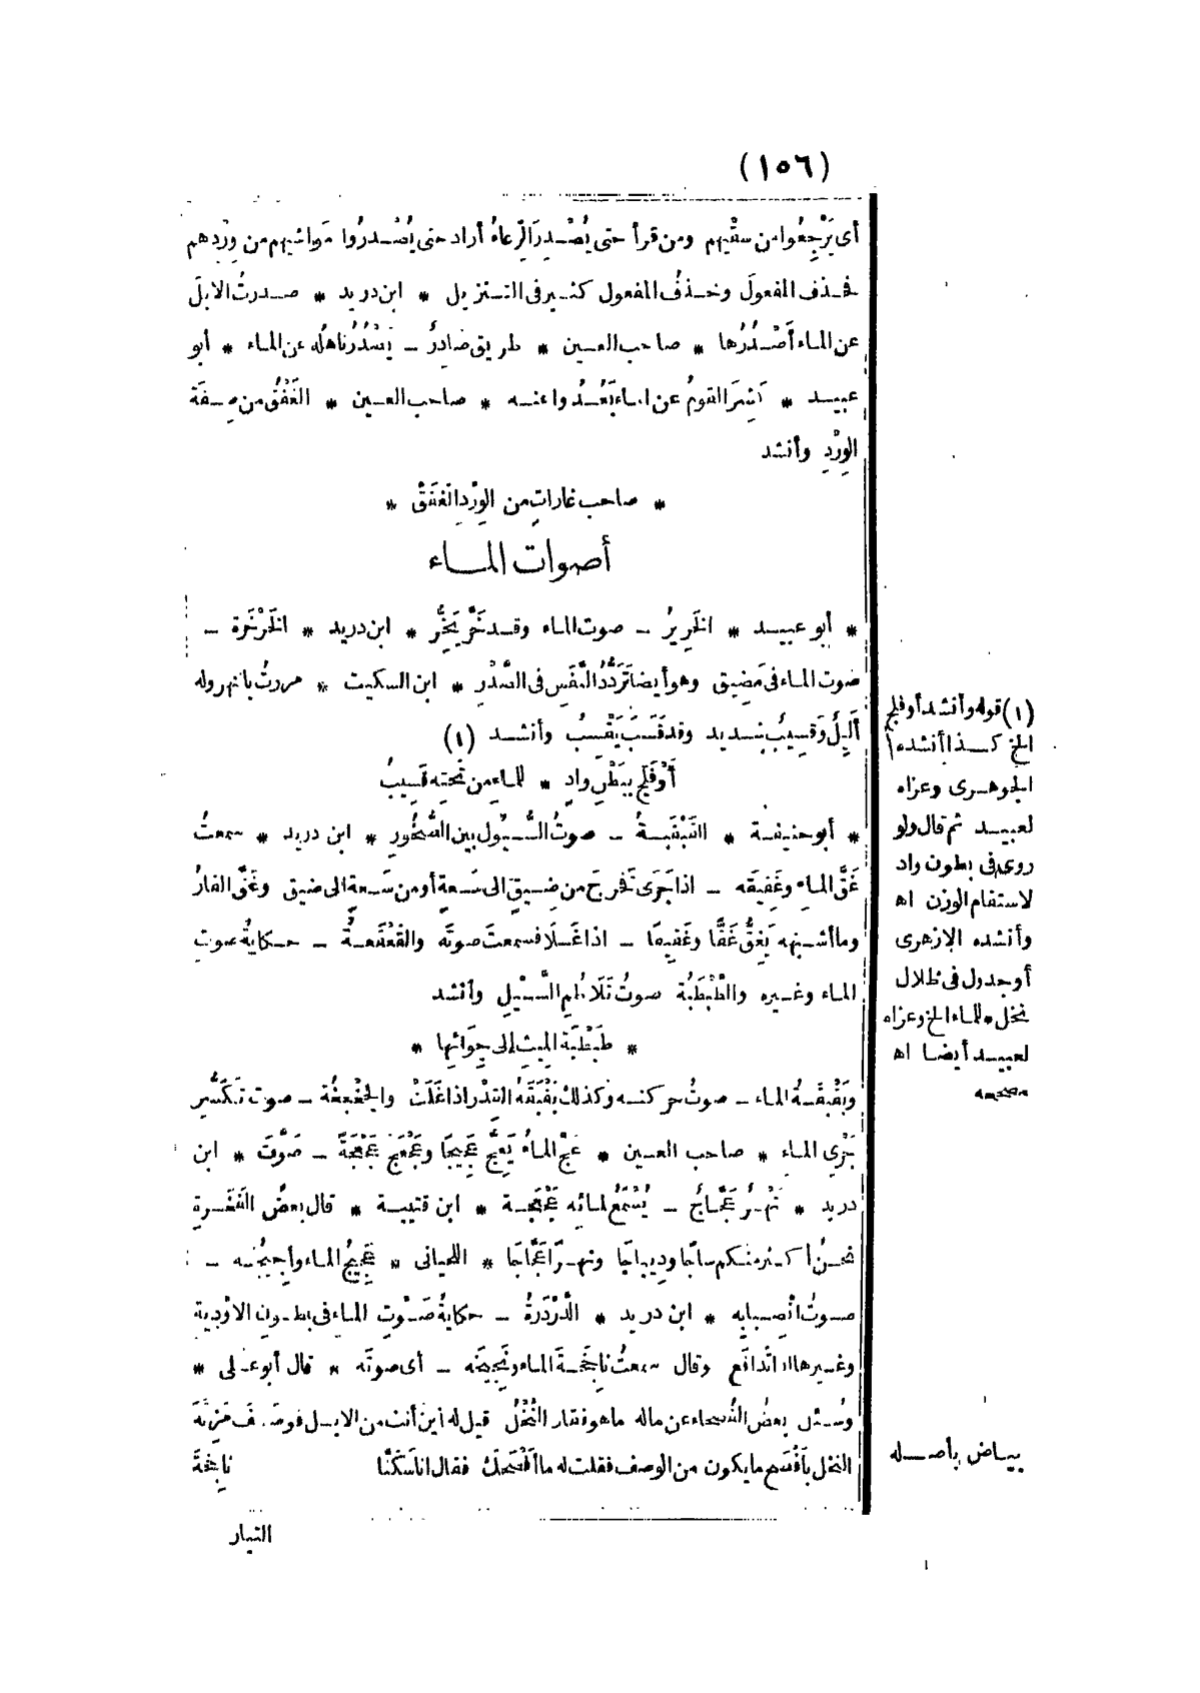 (١٥٦)
أى يَرْجِعُوا من سقْيهم ومن قرأ حتى يُصْدِرَ الرِّعاءُ أراد حتى يُصْدِرُوا مَواشيهم من وِرْدهم
فحذف المفعولَ وحَذفُ المفعول كثير فى التنزيل * ابن دريد * صدرتُ الابلَ
عن الماء أَصْدُرُها * صاحب العين * طريق صَادِرٌ ـ يَصْدُر بأهله عن الماء * أبو
عبيد * كَشَرَ القومُ عن الماء بَعُدُوا عنه * صاحب العين * الغَفْقُ من صِفَة
الوِرْدِ وأنشد
* صاحب غاراتٍ من الوِرْد الغَفَقْ *
أصوات الماء
* أبو عبيد * الخَرِيرُ ـ صوت الماء وقد خَرَّ يَخِرُّ * ابن دريد * الخَرْخَرة ـ
صوت الماء فى مَضِيق وهو أيضا تَرَدُّدُ النَّفَسِ فى الصَّدْرِ * ابن السكيت * مررتُ بالنهر وله
أَلِيلٌ وقَسِيبٌ شديد وقد قَسَبَ يَقْسِبُ وأنشد (١)
أَوْ فَلَجٍ بِبَطْنِ وادٍ * للماءِ من تَحْتِه قَسِيبُ
* أبو حنيفة * البَقْبَقةُ ـ صوتُ السُّيُول بين الصُّخُورِ * ابن دريد * سمعتُ
غَقَّ الماءِ وغَقِيقَه ـ اذا جَرَى فخرجَ من ضِيقٍ الى سَعةٍ أو من سَعةٍ الى ضيق وغَقَّ القارُ
وما أشبهه يَغِقُّ غَقًّا وغَقِيقا ـ اذا غَلَا فسمعتَ صوتَه والقَعْقَعةُ ـ حكايةُ صوت
الماء وغيره والطَّبْطَبَة صوتُ تَلَاطُمِ السَّيْلِ وأنشد
* طَبْطَبَة المِيث إلى جِوَائِها *
وبَقْبَقةُ الماء ـ صوتُ حركته وكذلك بَقْبَقَةُ القِدْر اذا غَلَتْ والخَفْخَفَة ـ صوت تَكَسُّرِ
جَرْىِ الماء * صاحب العين * عَجَّ الماءُ يَعِجُّ عَجِيجًا وعَجْعَجَ عَجْعَجَةً ـ صَوَّتَ * ابن
دريد * نَهْرٌ عَجَّاجٌ ـ يُسْمَعُ لمائِه عَجْعَجة * ابن قتيبة * قال بعضُ الفَخَرةِ
نحنُ أكثر منكم ساجًا ودِيباجًا ونهرًا عَجَّاجًا * اللحيانى * عَجِيجُ الماء وأَجِيجُه ـ
صوتُ انْصِبابِه * ابن دريد * الدَّرْدَرةُ ـ حكايةُ صَوْتِ الماء فى بطون الاوْدية
وغيرها اذا تَدافَع وقال سمعتُ ناجِخةَ الماء ونَجِيخَه ـ أى صوتَه * قال أبو على *
وسُئل بعضُ الفُصحاء عن ماله ما هو فقال النَّخْلُ قيل له أين أنت من الابل
النخل بأَفْصَحِ ما يكون من الوصف فقلت له ما أَفْصَحَكَ فقال انا سَكَنَّا ناجِخةَ
التيار
(١) قوله وأنشد أو فلج
الخ كذا أنشده
الجوهرى وعزاه
لعبيد ثم قال ولو
روى فى بطون واد
لاستقام الوزن اه
وأنشده الازهرى
أو جدول فى ظلال
نخل * للماء الخ وعزاه
لعبيد أيضا اه
مصححه
بياض بأصله